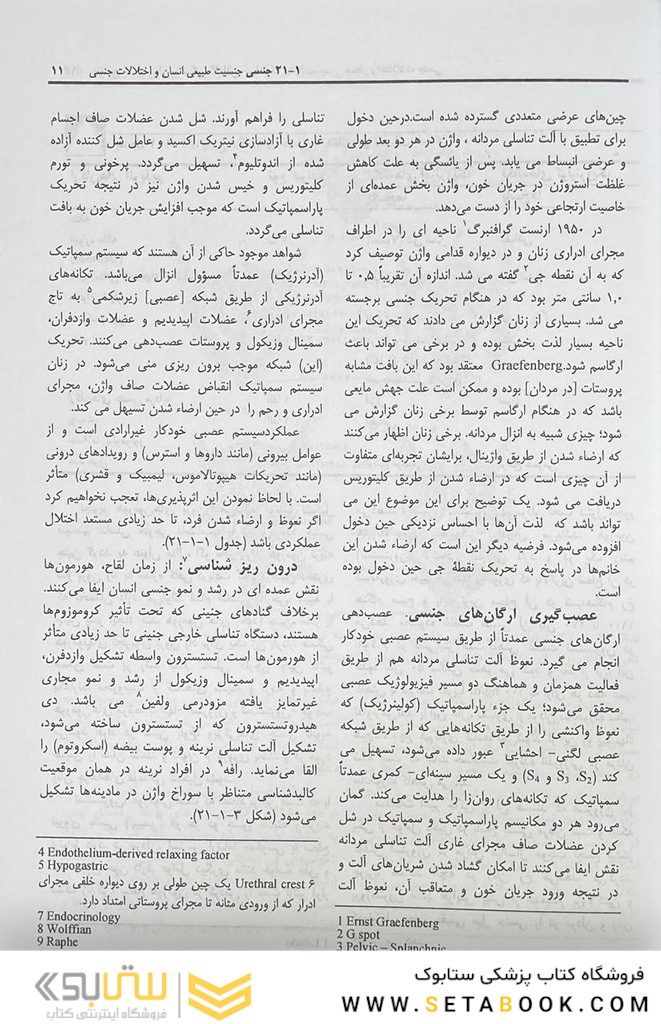 ۲۱-۱ جنسی جنسیت طبیعی انسان و اختلالات جنسی ۱۱
چین‌های عرضی متعددی گسترده شده است.درحین دخول
برای تطبیق با آلت تناسلی مردانه ، واژن در هر دو بعد طولی
و عرضی انبساط می یابد. پس از یائسگی به علت کاهش
غلظت استروژن در جریان خون، واژن بخش عمده‌ای از
خاصیت ارتجاعی خود را از دست می‌دهد.
در ۱۹۵۰ ارنست گرافنبرگ۱ ناحیه ای را در اطراف
مجرای ادراری زنان و در دیواره قدامی واژن توصیف کرد
که به آن نقطه جی۲ گفته می شد. اندازه آن تقریباً ۰,۵ تا
۱,۰ سانتی متر بود که در هنگام تحریک جنسی برجسته
می شد. بسیاری از زنان گزارش می دادند که تحریک این
ناحیه بسیار لذت بخش بوده و در برخی می تواند باعث
ارگاسم شود.Graefenberg معتقد بود که این بافت مشابه
پروستات [در مردان] بوده و ممکن است علت جهش مایعی
باشد که در هنگام ارگاسم توسط برخی زنان گزارش می
شود؛ چیزی شبیه به انزال مردانه. برخی زنان اظهار می‌کنند
که ارضاء شدن از طریق واژینال، برایشان تجربه‌ای متفاوت
از آن چیزی است که در ارضاء شدن از طریق کلیتوریس
دریافت می شود. یک توضیح برای این موضوع این می
تواند باشد که لذت آن‌ها با احساس نزدیکی حین دخول
افزوده می‌شود. فرضیه دیگر این است که ارضاء شدن این
خانم‌ها در پاسخ به تحریک نقطهٔ جی حین دخول بوده
است.
عصب‌گیری ارگان‌های جنسی. عصب‌دهی
ارگان‌های جنسی عمدتاً از طریق سیستم عصبی خودکار
انجام می گیرد. نعوظ آلت تناسلی مردانه هم از طریق
فعالیت همزمان و هماهنگ دو مسیر فیزیولوژیک عصبی
محقق می‌شود؛ یک جزء پاراسمپاتیک (کولینرژیک) که
نعوظ واکنشی را از طریق تکانه‌هایی که از طریق شبکه
عصبی لگنی- احشایی۳ عبور داده می‌شود، تسهیل می
کند (S2، S3 و S4) و یک مسیر سینه‌ای- کمری عمدتاً
سمپاتیک که تکانه‌های روان‌زا را هدایت می‌کند. گمان
می‌رود هر دو مکانیسم پاراسمپاتیک و سمپاتیک در شل
کردن عضلات صاف مجرای غاری آلت تناسلی مردانه
نقش ایفا می‌کنند تا امکان گشاد شدن شریان‌های آلت و
در نتیجه ورود جریان خون و متعاقب آن، نعوظ آلت
1 Ernst Graefenberg
2 G spot
3 Pelvic – Splanchnic
تناسلی را فراهم آورند. شل شدن عضلات صاف اجسام
غاری با آزادسازی نیتریک اکسید و عامل شل کننده آزاده
شده از اندوتلیوم۴، تسهیل می‌گردد. پرخونی و تورم
کلیتوریس و خیس شدن واژن نیز در نتیجه تحریک
پاراسمپاتیک است که موجب افزایش جریان خون به بافت
تناسلی می‌گردد.
شواهد موجود حاکی از آن هستند که سیستم سمپاتیک
(آدرنرژیک) عمدتاً مسؤول انزال می‌باشد. تکانه‌های
آدرنرژیکی از طریق شبکه [عصبی] زیرشکمی۵ به تاج
مجرای ادراری۶، عضلات اپیدیدیم و عضلات وازدفران،
سمینال وزیکول و پروستات عصب‌دهی می‌کنند. تحریک
(این) شبکه موجب برون ریزی منی می‌شود. در زنان
سیستم سمپاتیک انقباض عضلات صاف واژن، مجرای
ادراری و رحم را در حین ارضاء شدن تسیهل می کند.
عملکردسیستم عصبی خودکار غیرارادی است و از
عوامل بیرونی (مانند داروها و استرس) و رویدادهای درونی
(مانند تحریکات هیپوتالاموس، لیمبیک و قشری) متأثر
است. با لحاظ نمودن این اثرپذیری‌ها، تعجب نخواهیم کرد
اگر نعوظ و ارضاء شدن فرد، تا حد زیادی مستعد اختلال
عملکردی باشد (جدول ۱-۱-۲۱).
درون ریز شناسی۷: از زمان لقاح، هورمون‌ها
نقش عمده ای در رشد و نمو جنسی انسان ایفا می‌کنند.
برخلاف گنادهای جنینی که تحت تأثیر کروموزوم‌ها
هستند، دستگاه تناسلی خارجی جنینی تا حد زیادی متأثر
از هورمون‌ها است. تستسترون واسطه تشکیل وازدفرن،
اپیدیدیم و سمینال وزیکول از رشد و نمو مجاری
غیرتمایز یافته مزودرمی ولفین۸ می باشد. دی
هیدروتستسترون که از تستسترون ساخته می‌شود،
تشکیل آلت تناسلی نرینه و پوست بیضه (اسکروتوم) را
القا می‌نماید. رافه۹ در افراد نرینه در همان موقعیت
کالبدشناسی متناظر با سوراخ واژن در مادینه‌ها تشکیل
می‌شود (شکل ۳-۱-۲۱).
4 Endothelium-derived relaxing factor
5 Hypogastric
۶ Urethral crest یک چین طولی بر روی دیواره خلفی مجرای
ادرار که از ورودی مثانه تا مجرای پروستاتی امتداد دارد.
7 Endocrinology
8 Wolffian
9 Raphe
فروشگاه کتاب پزشکی ستابوک
WWW.SETABOOK.COM
ستابوک
فروشگاه اینترنتی کتاب